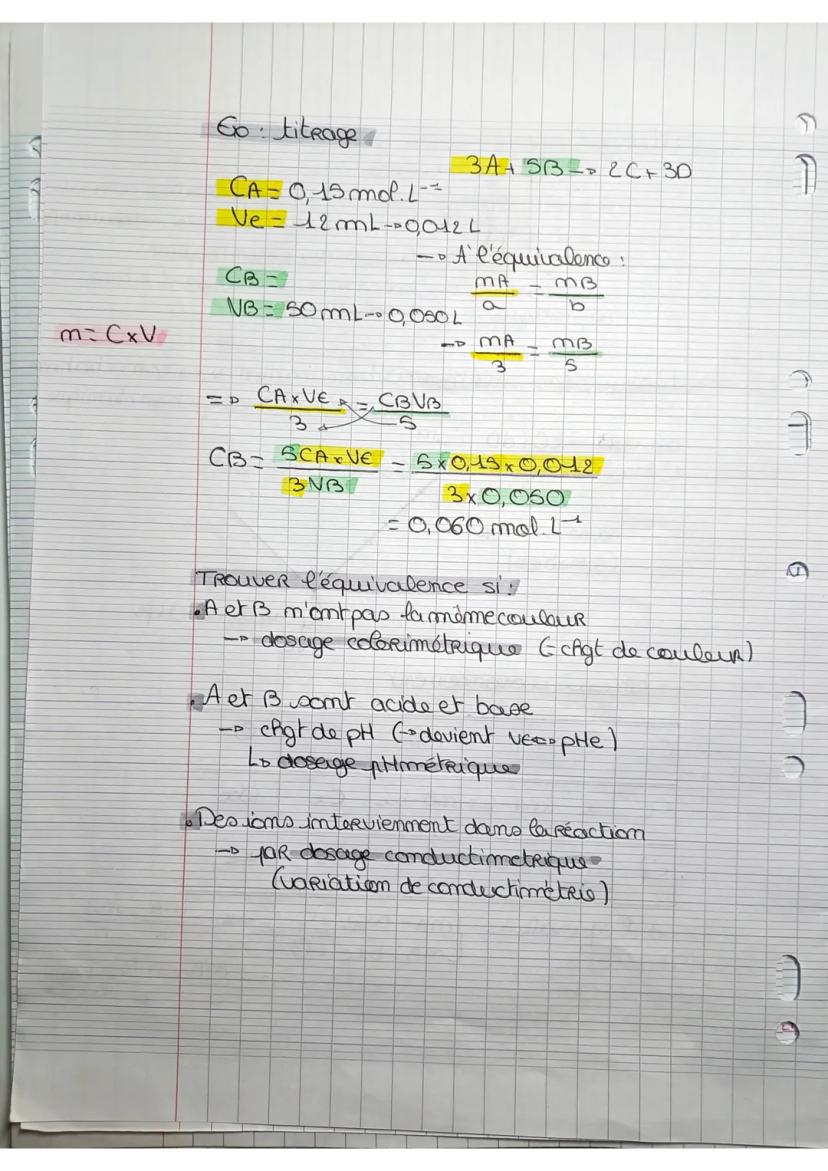 Exo : titrage
3A + 5B → 2C + 3D
CA = 0,15 mol.L⁻¹
Ve = 12 mL → 0,012 L
→ A l'équivalence :
CB =
nA/a = nB/b
VB = 50 mL → 0,050 L
n = C×V
→ nA/3 = nB/5
=> CA×VE/3 = CBVB/5
CB = 5CA×VE/3VB = 5×0,15×0,012/3×0,050
= 0,060 mol.L⁻¹
TROUVER l'équivalence si :
. A et B n'ont pas la même couleur
→ dosage colorimétrique (= chgt de couleur)
. A et B sont acide et base
→ chgt de pH (→ devient VE → pHe)
↳ dosage pHmétrique
. Des ions interviennent dans la réaction
→ par dosage conductimetrique
(variation de conductimétrie)